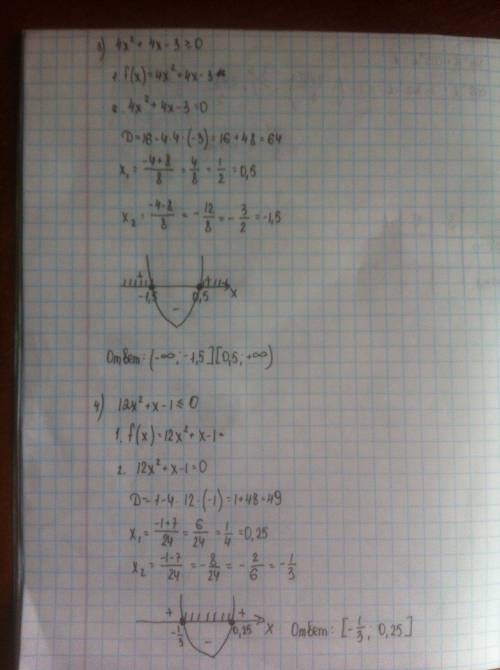 3) 4x² + 4x - 3 ≥ 0
1. f(x) = 4x² + 4x - 3
2. 4x² + 4x - 3 = 0
D = 16 - 4·4·(-3) = 16 + 48 = 64
x₁ = (-4+8)/8 = 4/8 = 1/2 = 0,5
x₂ = (-4-8)/8 = -12/8 = -3/2 = -1,5
+ - +
-1,5 0,5 x
Ответ: (-∞; -1,5][0,5; +∞)
4) 12x² + x - 1 ≤ 0
1. f(x) = 12x² + x - 1 =
2. 12x² + x - 1 = 0
D = 1 - 4·12·(-1) = 1 + 48 = 49
x₁ = (-1+7)/24 = 6/24 = 1/4 = 0,25
x₂ = (-1-7)/24 = -8/24 = -2/6 = -1/3
+ - +
-1/3 0,25 x Ответ: [-1/3; 0,25]